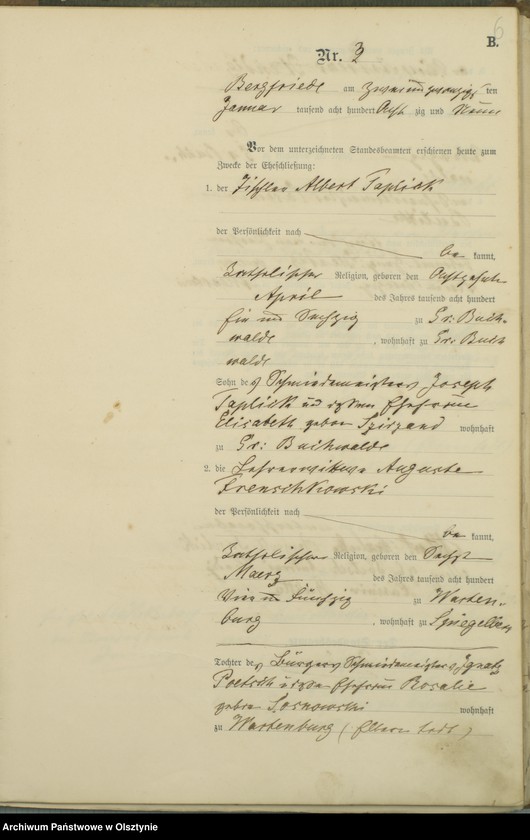 6
B.
Nr. 3
Bergfriede am zwei und zwanzig ten
Januar tausend acht hundert Acht zig und Neun
Vor dem unterzeichneten Standesbeamten erschienen heute zum
Zwecke der Eheschließung:
1. der Tischler Albert Taplick
der Persönlichkeit nach
be kannt,
katholischer Religion, geboren den
April des Jahres tausend acht hundert
Ein und Sechzig zu Gr: Buch-
walde, wohnhaft zu Gr: Buch
walde
Sohn des Schmiedemeisters Joseph
Taplick und dessen Ehefrau
Elisabeth geboren wohnhaft
zu Gr: Buchwalde
2. die Lehrerwittwe Auguste
Krenschkowski
der Persönlichkeit nach
be kannt,
katholischer Religion, geboren den
Maerz des Jahres tausend acht hundert
Vier und Fünfzig zu Warten-
burg, wohnhaft zu Spiegelberg
Tochter des Bürgers Schmiedemeisters Ignatz
Poetsch und dessen Ehefrau Rosalie
geboren Sosnowski wohnhaft
zu Wartenburg (Eltern todt)
Archiwum Państwowe w Olsztynie